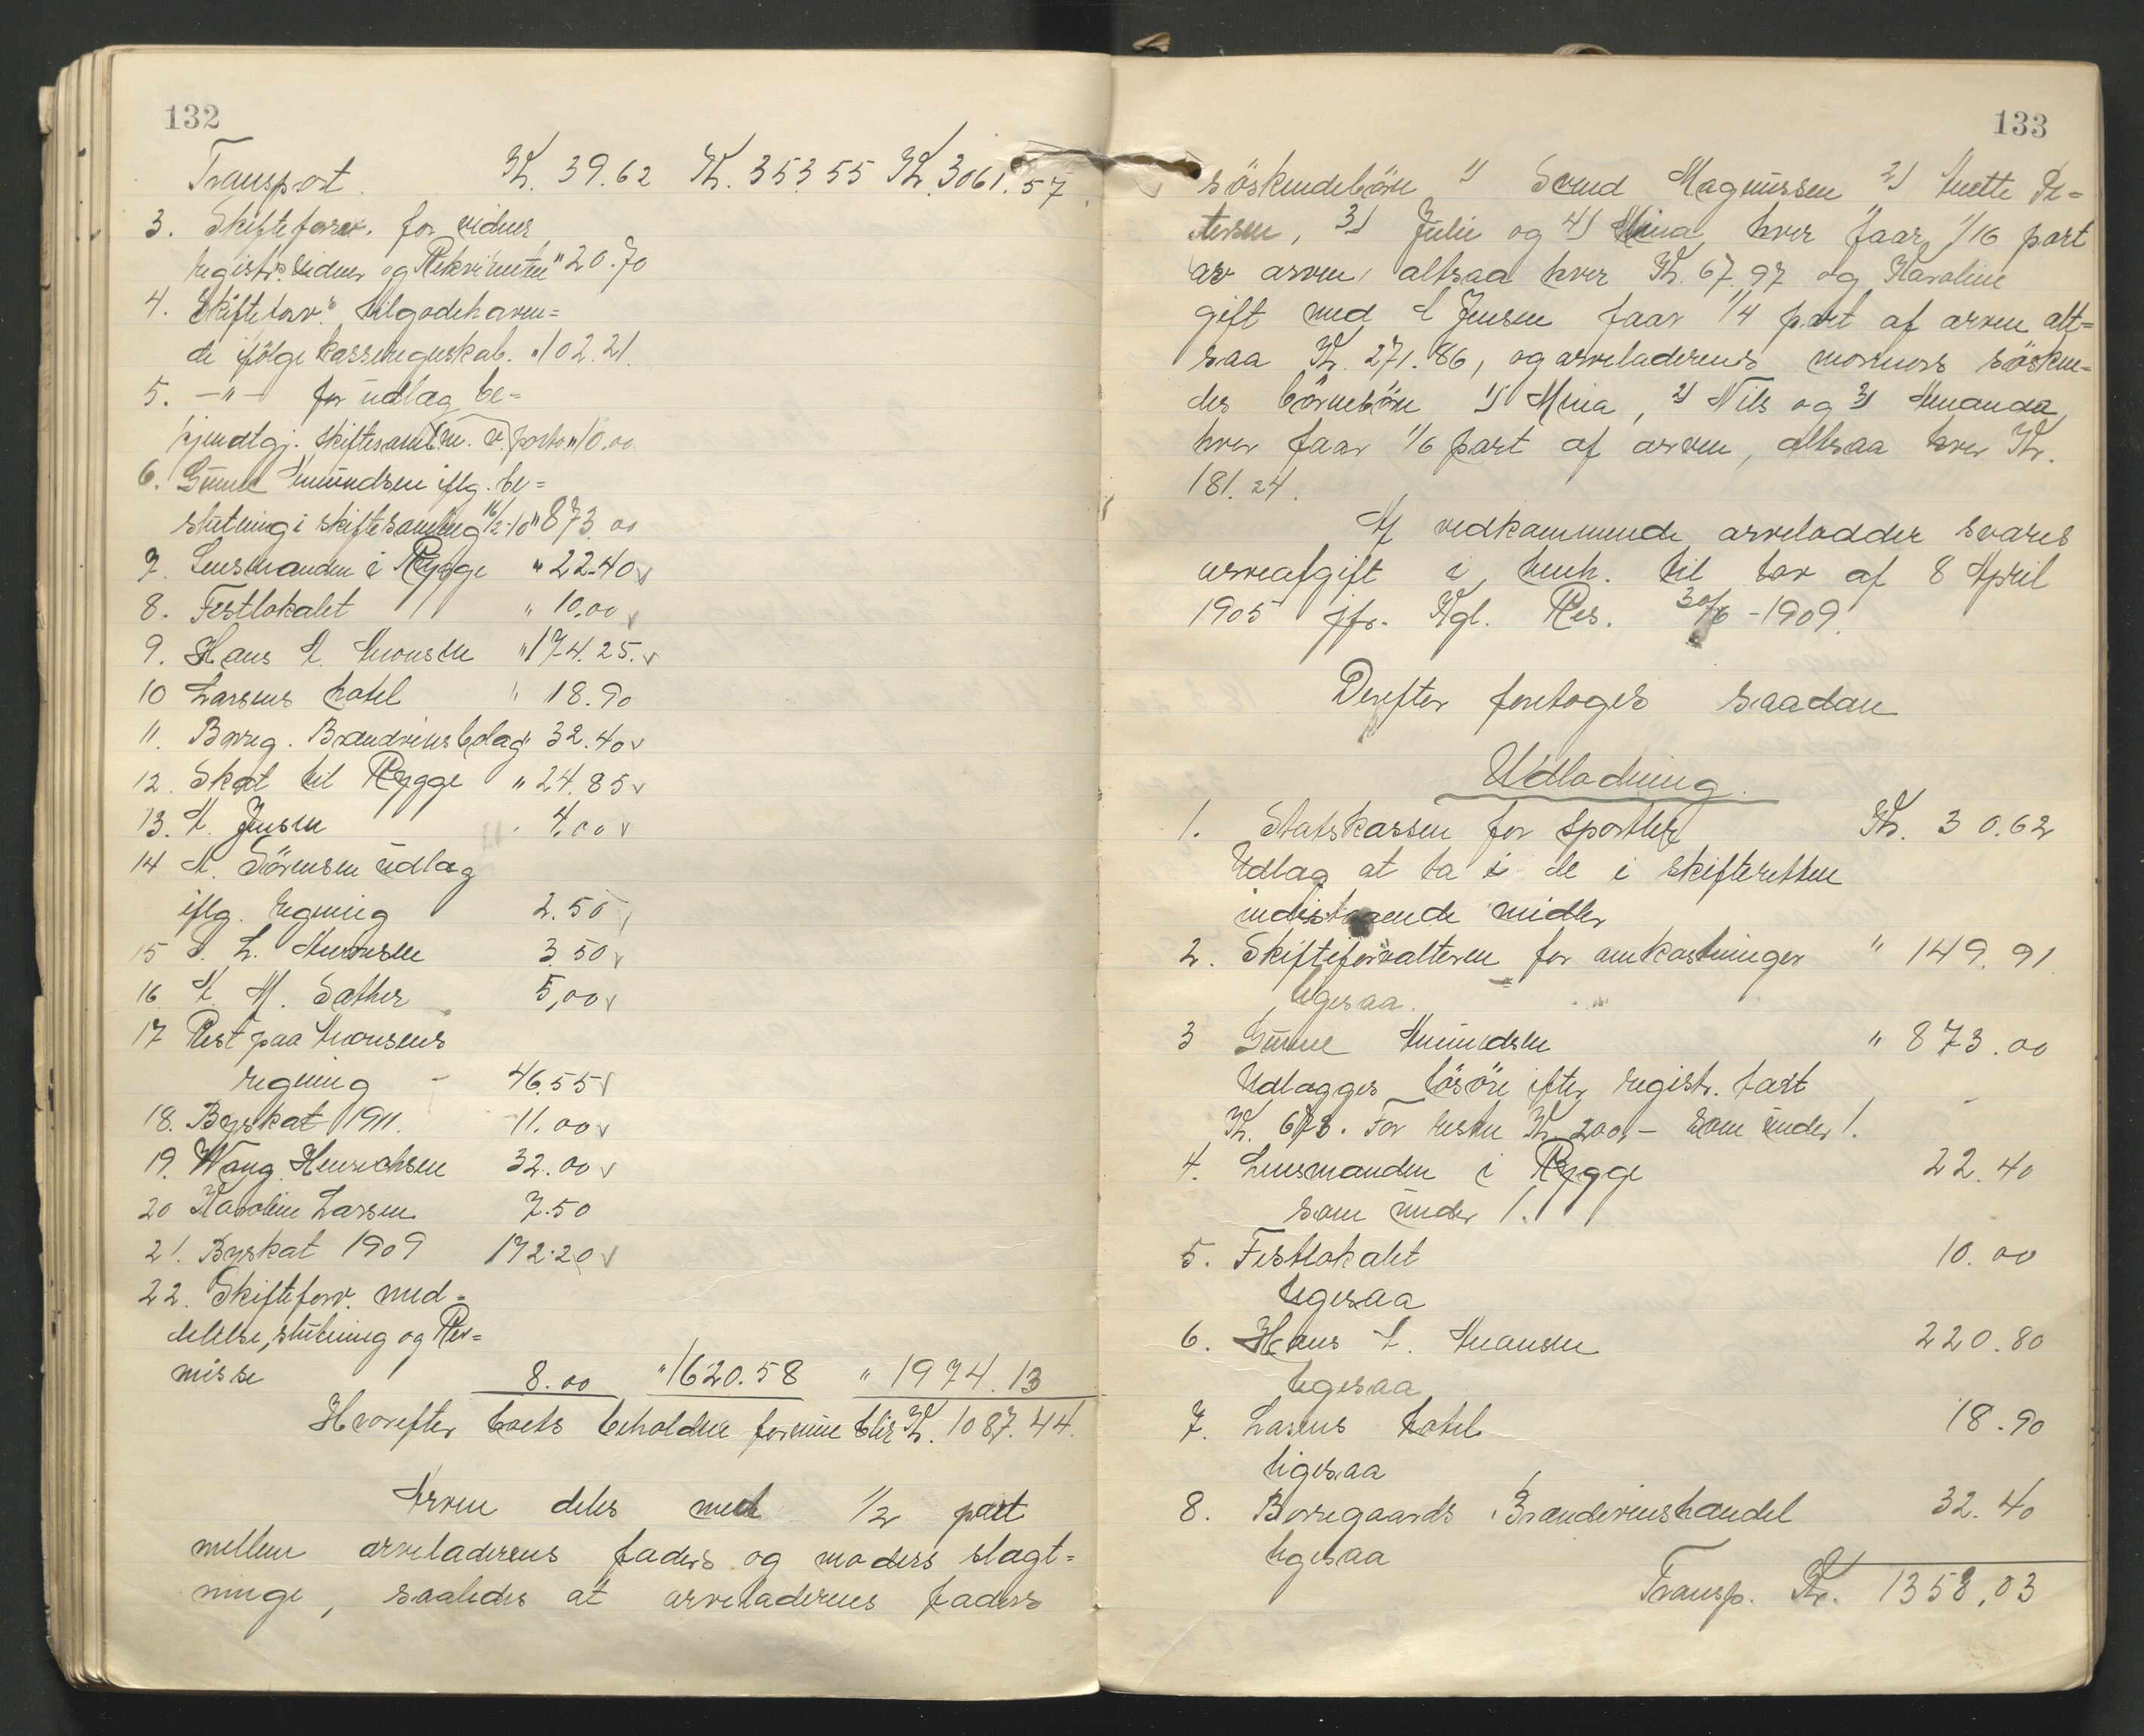 132
Transport. Kr. 39.62 Kr. 353 55 Kr. 3061.57
3. Skifteforv. for vidner
registr. vidner og Rekvirenten " 20.70
4. Skifteforv.s tilgodehaven=
de ifölge kasseregnskab. " 102.21
5. -"- for udlag be=
kjendtgj. skiftesaml. m. v. porto " 10.00
6. Gunne Amundsen iflg. be=
slutning i skiftesamling 16/2-10 " 873.00
7. Lensmanden i Rygge " 22.40 v
8. Festlokalet " 10.00 v
9. Hans A. Aronsen " 174.25. v
10 Larsens hotel " 18.90
11. Borreg. Brændevinsbolag " 32.40 v
12. Skat til Rygge " 24.85 v
13. A. Jensen 4,00 v
14 M. Sörensen udlæg
iflg. regning 2.50
15 L. Aronsen 3.50 v
16 A. M. Sæther 5,00 v
17 Rest paa Aronsens
regning - 46.55 v
18. Byskat 1911. 11.00 v
19. Wang Henrichsen 32.00 v
20 Karoline Larsen 7.50
21. Byskat 1909 172.20 v
22. Skifteforv. med=
delelse, slutning og Re=
misse 8.00 " 1620.58 " 1974.13
Hvorefter boets beholdne formue blir Kr. 1087.44.
Arven deles med 1/2 part
mellem arveladerens faders og moders slægt=
ninge, saaledes at arveladerens faders
133
söskendebörn 1) Svend Magnussen 2) Anette Pe=
tersen, 3) Julie og 4) Mina, hver faar 1/16 part
av arven, altsaa hver Kr. 67.97 og Karoline
gift med A Jensen faar 1/4 part af arven alt=
saa Kr. 271.86, og arveladerens mormors sösken=
des börnebörn 1) Mina, 2) Nils og 3) Amanda,
hver faar 1/6 part af arven, altsaa hver Kr.
181.24.
Af vedkommende arvelodder svares
arveafgift i henh. til lov af 8 April
1905 jfr. Kgl. Res. 30/6 - 1909.
Derefter foretoges saadan
Udlodning.
1. Statskassen for sportler Kr. 30.62
Udlæg at ta i de i skifteretten
indestaaende midler
2. Skifteforvalteren for omkostninger " 149.91
ligesaa.
3 Gunne Amundsen " 873.00
Udlægges lösöre efter registr. taxt
Kr. 673. For resten Kr. 200,- som under 1.
4. Lensmanden i Rygge 22.40
som under 1.
5. Festlokalet 10.00
ligesaa
6. Hans A. Aronsen 220.80
ligesaa
7. Larsens hotel 18.90
ligesaa
8. Borregaards Brændevinshandel 32.40
ligesaa
Transp. Kr. 1358,03